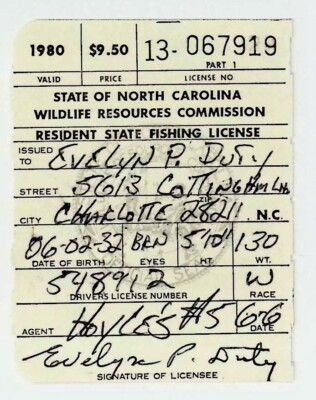 1980 $9.50 13- 067919
PART 1
VALID PRICE LICENSE NO
STATE OF NORTH CAROLINA
WILDLIFE RESOURCES COMMISSION
RESIDENT STATE FISHING LICENSE
ISSUED TO EVELYN P. DUTY
STREET 5613 COTTINGHAM LN.
CITY CHARLOTTE ZIP 28211 N.C.
06-02-32 BRN 5'10" 130
DATE OF BIRTH EYES HT. WT.
548912 W
DRIVERS LICENSE NUMBER RACE
AGENT HOYLE'S #5 6-6
DATE
Evelyn P. Duty
SIGNATURE OF LICENSEE